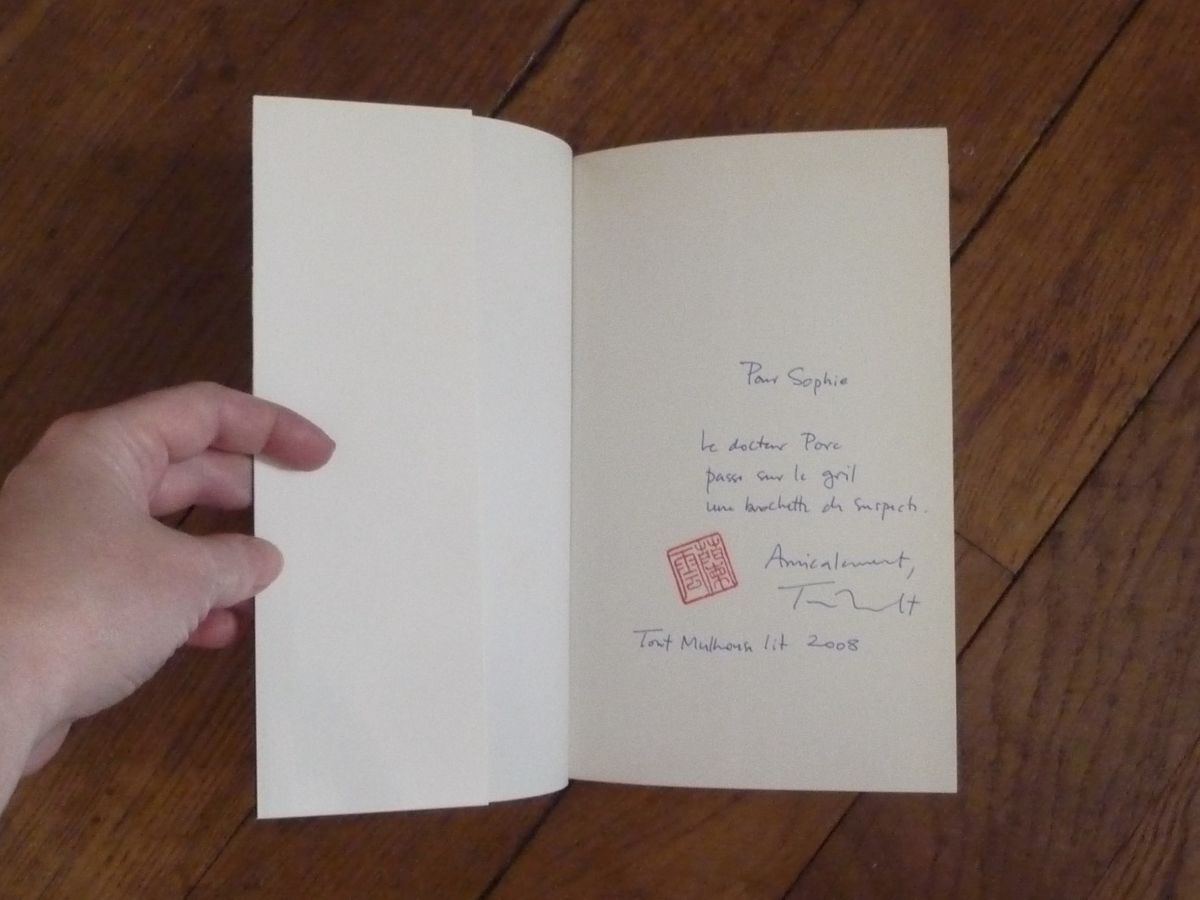 Pour Sophie
Le docteur Porc
passe sur le gril
une brochette de suspects.
Amicalement,
Tout Mulhouse lit 2008